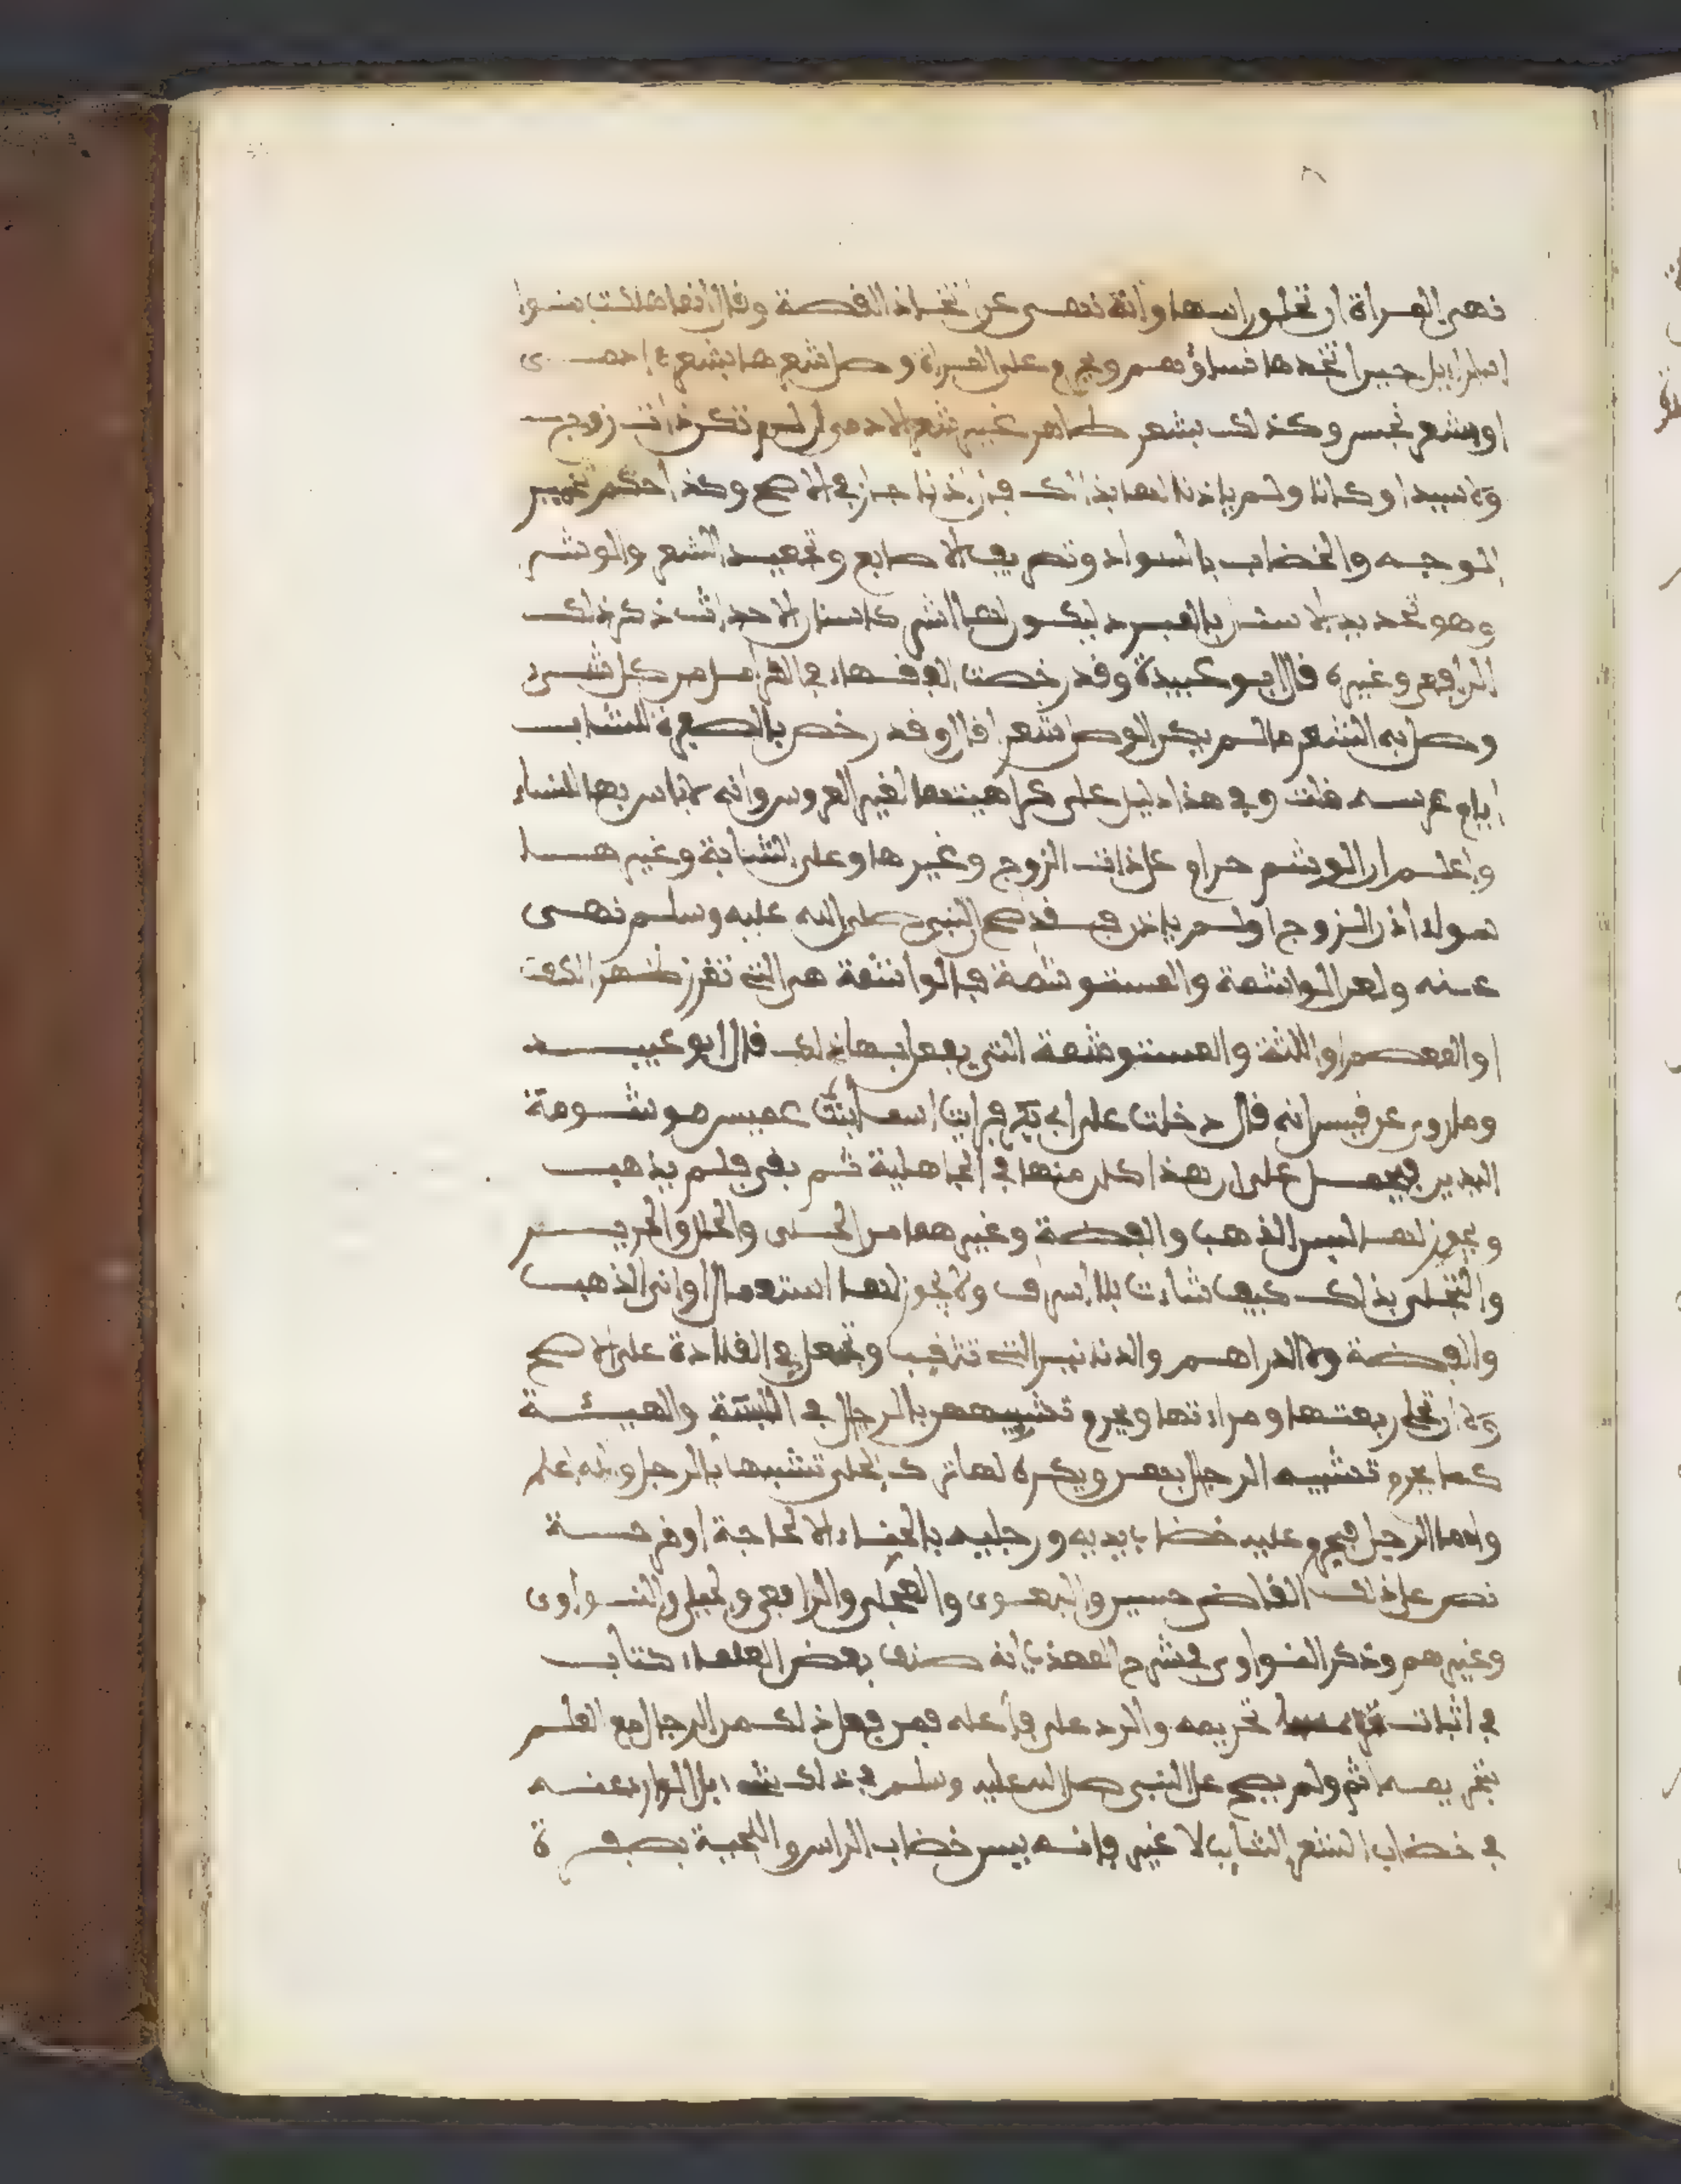 نهى المراة ان تحلق راسها وانه نهى عن اتخاذ القصة وقال انما هلكت بنوا
اسراييل حين اتخدها نساؤهم ويحرم على المراة وصل شعرها بشعر ادمى
او بشعر نجس وكذلك بشعر طاهر غير شعر الادمى ان لم تكن ذات زوج
ولا سيد او كانا ولم ياذنا لها بذالك فان اذنا جاز في الاصح وكذا حكم تحمير
الوجه والخضاب بالسواد وتطريف الاصابع وتجعيد الشعر والوشر
وهو تحديد الاسنان بالمبرد ليكون لها اشر كاسنان الاحداث ذكر ذلك
الرافعى وغيره قال ابو عبيدة وقد رخصت الفقهاء في القرامل من كل شىء
وصل به الشعر ما لم يكن الوصل شعرا قال وقد رخص بالصفرة للشاب
ايام عرسه قلت وفي هذا دليل على كراهيتها لغير العروس وانه لا باس بها للنساء
واعلم ان الوشم حرام على ذات الزوج وغيرها وعلى الشابة وغيرها
سواء اذن الزوج او لم ياذن فقد صح النبى صلى الله عليه وسلم نهى
عنه ولعن الواشمة والمستوشمة فالواشمة هى التى تغرز ظهر الكف
او المعصم او اللثة والمستوشمة التى يفعل بها ذلك قال ابو عبيد
وما روى عن قيس انه قال دخلت على ابي بكر فرايت اسما ابنت عميس موشومة
اليدين فيحمل على ان هذا كان منها في الجاهلية ثم بقى فلم يذهب
ويجوز لها لبس الذهب والفضة وغيرهما من الحلى والحلل والحرير
والتحلى بذلك كيف شاءت بلا اسراف ولا يجوز لها استعمال اوانى الذهب
والفضة ولا الدراهم والدنانير التى تثقب وتجعل في القلادة على الاصح
ولا ان تحلى ربعتها ومراءتها ويحرم تشبيههن بالرجال في اللبسة والهيئة
كما يحرم تشبيه الرجال بهن ويكره لها ترك الحلى تشبيها بالرجل والله اعلم
واما الرجل فيحرم عليه خضاب يديه ورجليه بالحناء الا لحاجة او قرحة
نص على ذلك القاضى حسين والبغوى والعجلى والرافعى والنواوى
وغيرهم وذكر النواوى في شرح المهذب انه صنف بعض العلماء كتاب
في اثبات تحريمه والرد على فاعله فمن فعل ذلك من الرجال مع العلم
بتحريمه اثم ولم يصح على النبى صلى الله عليه وسلم في ذلك شىء بل الوارد عنه
في خضاب الشعر الشايب لا غير فانه يسن خضاب الراس واللحية بصفرة